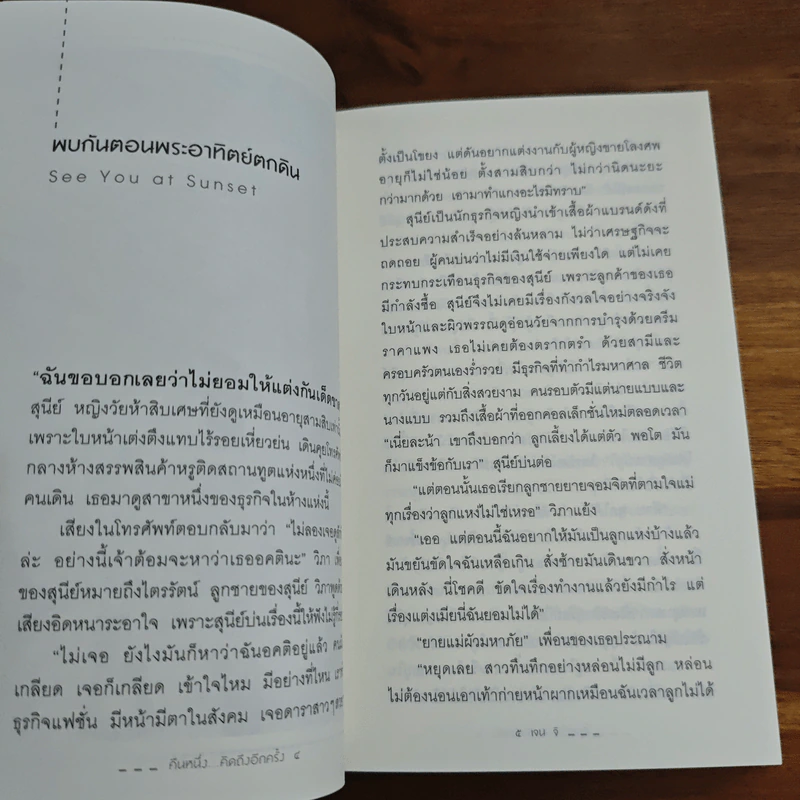 พบกันตอนพระอาทิตย์ตกดิน
See You at Sunset
"ฉันขอบอกเลยว่าไม่ยอมให้แต่งกันเด็ดขาด
สุนีย์ หญิงวัยห้าสิบเศษที่ยังดูเหมือนอายุสามสิบ
เพราะใบหน้าเต่งตึงแทบไร้รอยเหี่ยวย่น เดินคุย
กลางห้างสรรพสินค้าหรูติดสถานทูตแห่งหนึ่งที่ไม่
คนเดิน เธอมาดูสาขาหนึ่งของธุรกิจในห้างแห่งนี้
เสียงในโทรศัพท์ตอบกลับมาว่า "ไม่ลองเจอ
ล่ะ อย่างนี้เจ้าต้อมจะหาว่าเธออคตินะ" วิภา
ของสุนีย์หมายถึงไตรรัตน์ ลูกชายของสุนีย์ วิภาพูด
เสียงอิดหนาระอาใจ เพราะสุนีย์บ่นเรื่องนี้ให้ฟัง
"ไม่เจอ ยังไงมันก็หาว่าฉันอคติอยู่แล้ว
เกลียด เจอก็เกลียด เข้าใจไหม มีอย่างที่ไหน
ธุรกิจแฟชั่น มีหน้ามีตาในสังคม เจอดาราสาวๆ
คืนหนึ่ง... คิดถึงอีกครั้ง ๔
ตั้งเป็นโขยง แต่ดันอยากแต่งงานกับผู้หญิงขายโลงศพ
อายุก็ไม่ใช่น้อย ตั้งสามสิบกว่า ไม่กว่านิดนะยะ
กว่ามากด้วย เอามาทำแกงอะไรมิทราบ"
สุนีย์เป็นนักธุรกิจหญิงนำเข้าเสื้อผ้าแบรนด์ดังที่
ประสบความสำเร็จอย่างล้นหลาม ไม่ว่าเศรษฐกิจจะ
ถดถอย ผู้คนบ่นว่าไม่มีเงินใช้จ่ายเพียงใด แต่ไม่เคย
กระทบกระเทือนธุรกิจของสุนีย์ เพราะลูกค้าของเธอ
มีกำลังซื้อ สุนีย์จึงไม่เคยมีเรื่องกังวลใจอย่างจริงจัง
ใบหน้าและผิวพรรณดูอ่อนวัยจากการบำรุงด้วยครีม
ราคาแพง เธอไม่เคยต้องตรากตรำ ด้วยสามีและ
ครอบครัวตนเองร่ำรวย มีธุรกิจที่ทำกำไรมหาศาล ชีวิต
ทุกวันอยู่แต่กับสิ่งสวยงาม คนรอบตัวมีแต่นายแบบและ
นางแบบ รวมถึงเสื้อผ้าที่ออกคอลเล็กชั่นใหม่ตลอดเวลา
"เนี่ยละน้า เขาถึงบอกว่า ลูกเลี้ยงได้แต่ตัว พอโต มัน
ก็มาแข็งข้อกับเรา" สุนีย์บ่นต่อ
"แต่ตอนนั้นเธอเรียกลูกชายยายจอมจิตที่ตามใจแม่
ทุกเรื่องว่าลูกแหง่ไม่ใช่เหรอ" วิภาแย้ง
"เออ แต่ตอนนี้ฉันอยากให้มันเป็นลูกแหง่บ้างแล้ว
มันขยันขัดใจฉันเหลือเกิน สั่งซ้ายมันเดินขวา สั่งหน้า
เดินหลัง นี่โชคดี ขัดใจเรื่องทำงานแล้วยังมีกำไร แต่
เรื่องแต่งเมียนี่ฉันยอมไม่ได้"
"ยายแม่ผัวมหาภัย" เพื่อนของเธอประณาม
"หยุดเลย สาวทึนทึกอย่างหล่อนไม่มีลูก หล่อน
ไม่ต้องนอนเอาเท้าก่ายหน้าผากเหมือนฉันเวลาลูกไม่ได้
๕ เจน จิ